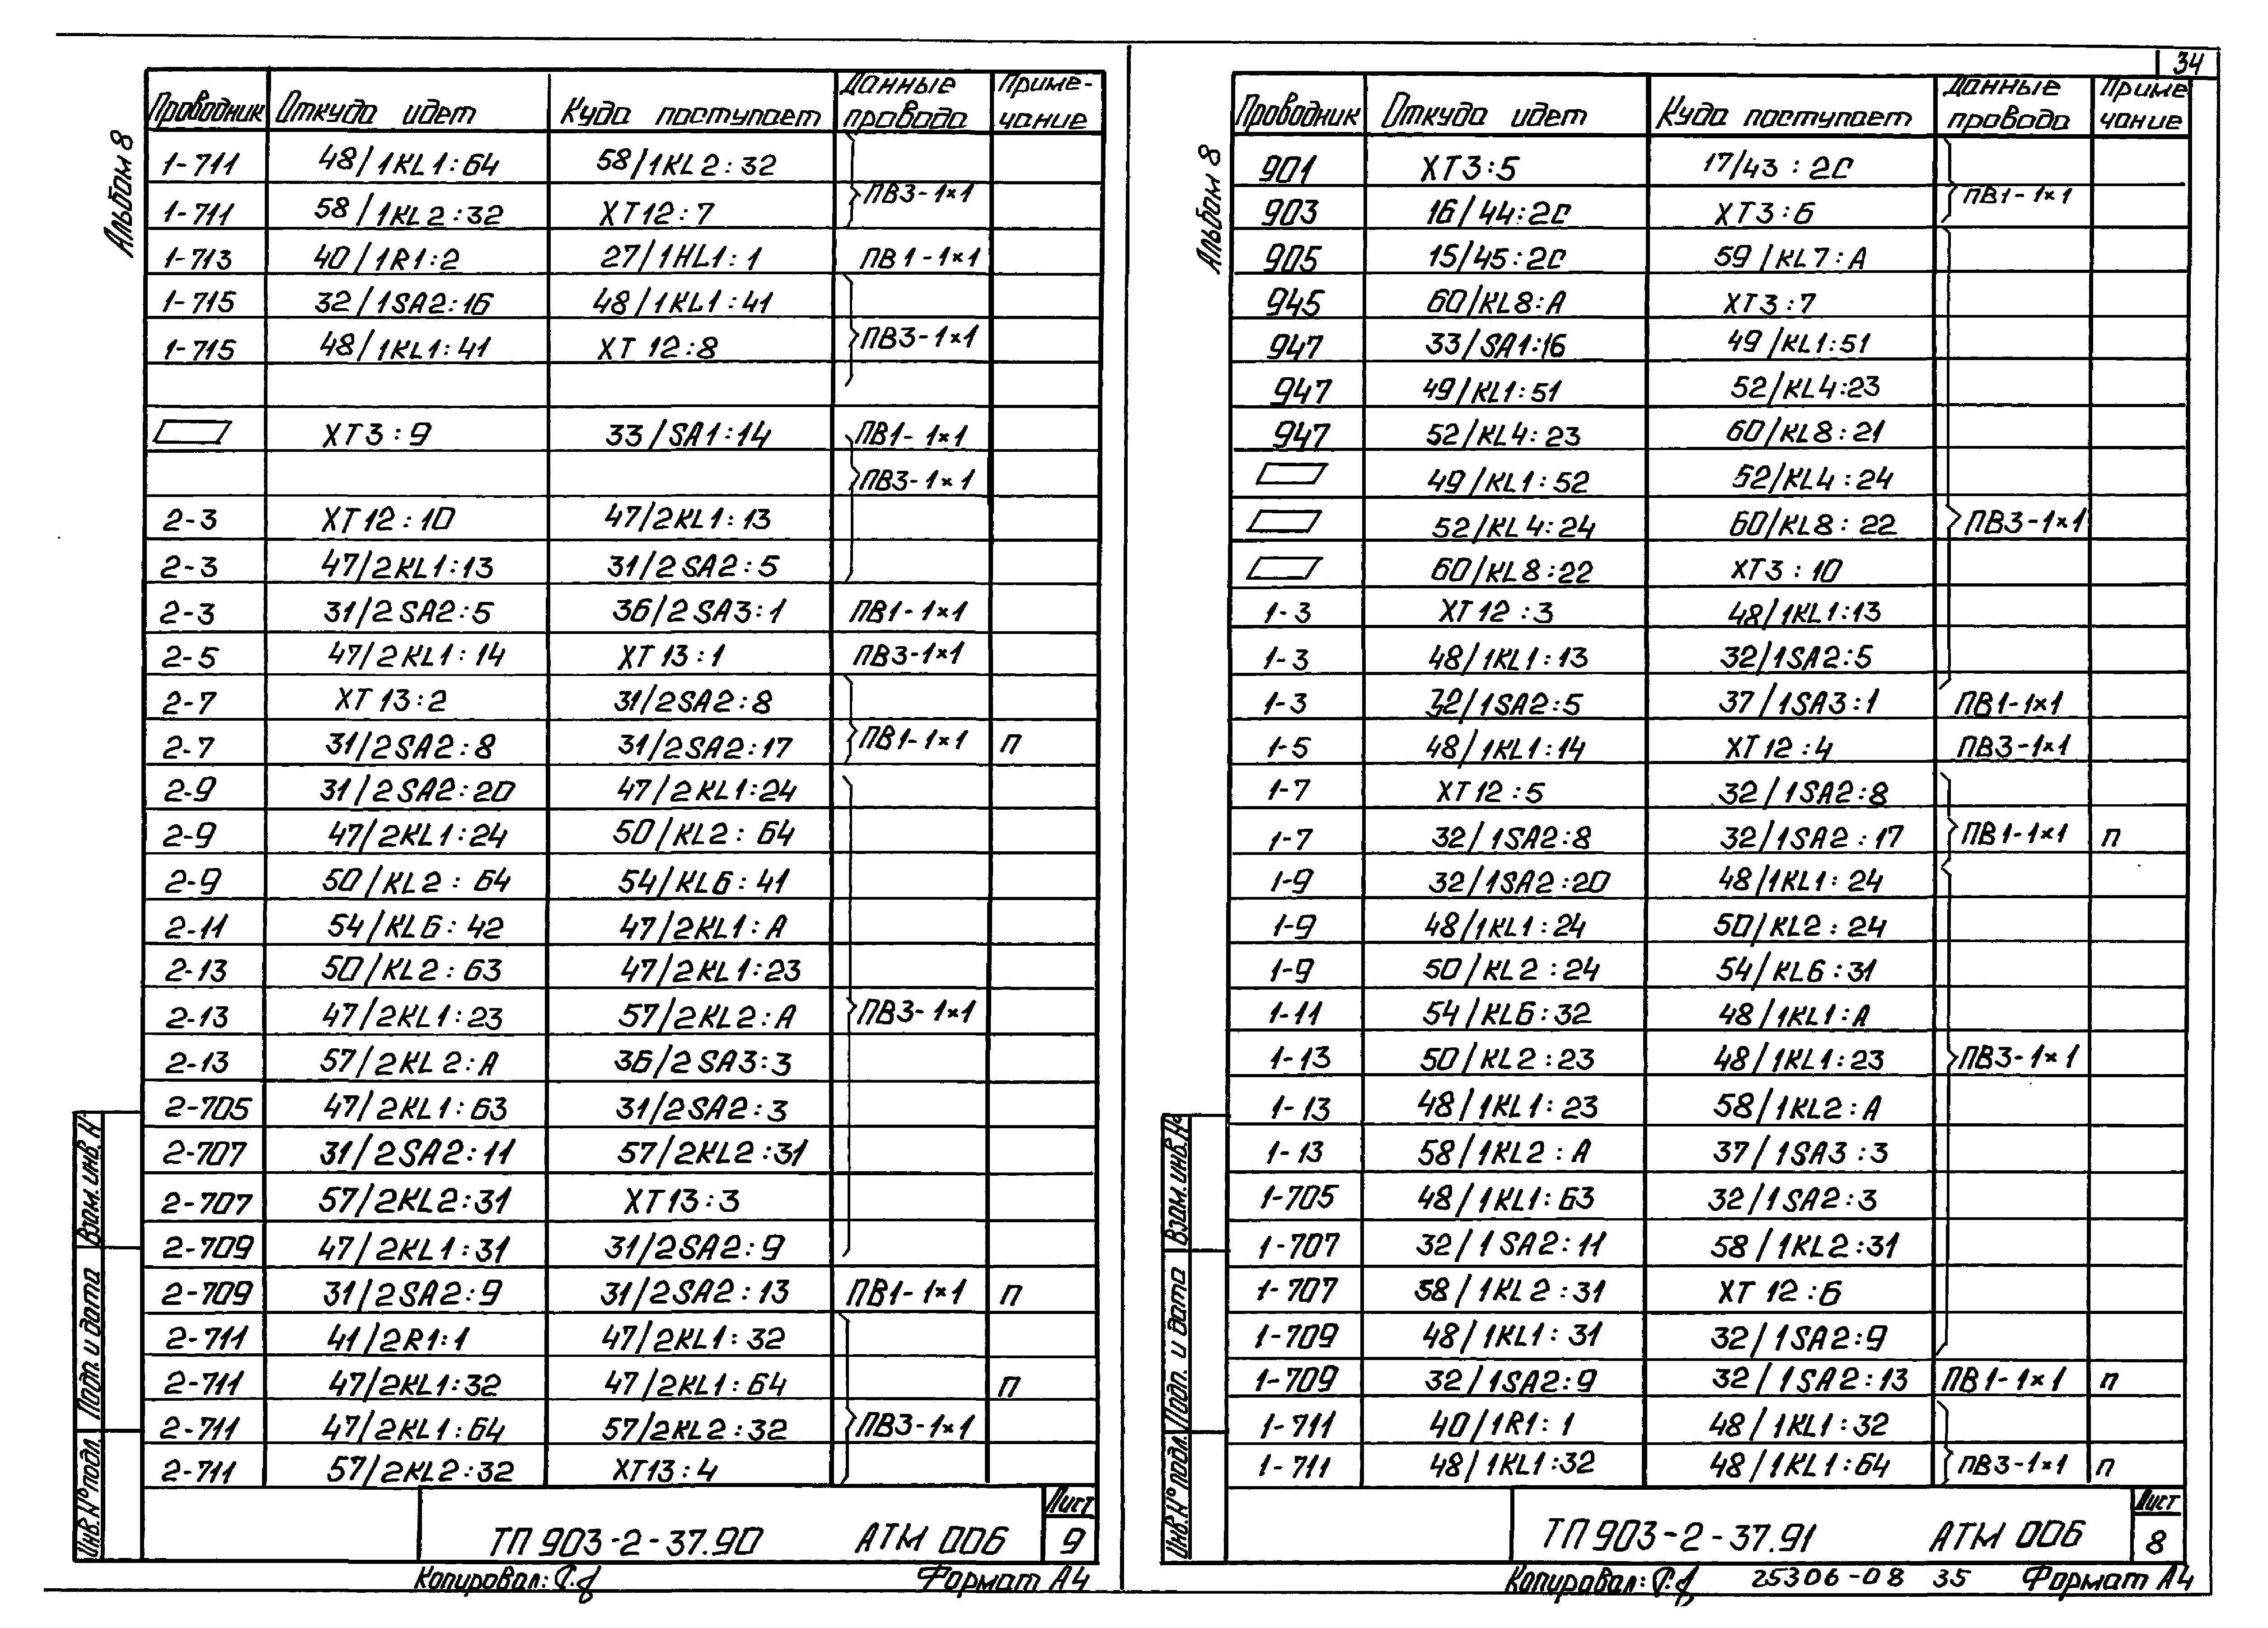 34
Альбом 8
Проводник Откуда идет Куда поступает Данные провода Приме-чание
1-711 48/1KL1:64 58/1KL2:32
1-711 58/1KL2:32 XT12:7 ПВ3-1×1
1-713 40/1R1:2 27/1HL1:1 ПВ1-1×1
1-715 32/1SA2:16 48/1KL1:41
1-715 48/1KL1:41 XT12:8 ПВ3-1×1
XT3:9 33/SA1:14 ПВ1-1×1
ПВ3-1×1
2-3 XT12:10 47/2KL1:13
2-3 47/2KL1:13 31/2SA2:5
2-3 31/2SA2:5 36/2SA3:1 ПВ1-1×1
2-5 47/2KL1:14 XT13:1 ПВ3-1×1
2-7 XT13:2 31/2SA2:8
2-7 31/2SA2:8 31/2SA2:17 ПВ1-1×1 п
2-9 31/2SA2:20 47/2KL1:24
2-9 47/2KL1:24 50/KL2:64
2-9 50/KL2:64 54/KL6:41
2-11 54/KL6:42 47/2KL1:A
2-13 50/KL2:63 47/2KL1:23
2-13 47/2KL1:23 57/2KL2:A ПВ3-1×1
2-13 57/2KL2:A 36/2SA3:3
2-705 47/2KL1:63 31/2SA2:3
2-707 31/2SA2:11 57/2KL2:31
2-707 57/2KL2:31 XT13:3
2-709 47/2KL1:31 31/2SA2:9
2-709 31/2SA2:9 31/2SA2:13 ПВ1-1×1 п
2-711 41/2R1:1 47/2KL1:32
2-711 47/2KL1:32 47/2KL1:64 п
2-711 47/2KL1:64 57/2KL2:32 ПВ3-1×1
2-711 57/2KL2:32 XT13:4
Взам.инв.N°
Подп. и дата
Инв.N°подл.
ТП 903-2-37.90 АТМ 006 Лист 9
Копировал: Формат А4
Альбом 8
Проводник Откуда идет Куда поступает Данные провода Приме чание
901 XT3:5 17/43:2C
903 16/44:2C XT3:6 ПВ1-1×1
905 15/45:2C 59/KL7:A
945 60/KL8:A XT3:7
947 33/SA1:16 49/KL1:51
947 49/KL1:51 52/KL4:23
947 52/KL4:23 60/KL8:21
49/KL1:52 52/KL4:24
52/KL4:24 60/KL8:22 ПВ3-1×1
60/KL8:22 XT3:10
1-3 XT12:3 48/1KL1:13
1-3 48/1KL1:13 32/1SA2:5
1-3 32/1SA2:5 37/1SA3:1 ПВ1-1×1
1-5 48/1KL1:14 XT12:4 ПВ3-1×1
1-7 XT12:5 32/1SA2:8
1-7 32/1SA2:8 32/1SA2:17 ПВ1-1×1 п
1-9 32/1SA2:20 48/1KL1:24
1-9 48/1KL1:24 50/KL2:24
1-9 50/KL2:24 54/KL6:31
1-11 54/KL6:32 48/1KL1:A
1-13 50/KL2:23 48/1KL1:23 ПВ3-1×1
1-13 48/1KL1:23 58/1KL2:A
1-13 58/1KL2:A 37/1SA3:3
1-705 48/1KL1:63 32/1SA2:3
1-707 32/1SA2:11 58/1KL2:31
1-707 58/1KL2:31 XT12:6
1-709 48/1KL1:31 32/1SA2:9
1-709 32/1SA2:9 32/1SA2:13 ПВ1-1×1 п
1-711 40/1R1:1 48/1KL1:32
1-711 48/1KL1:32 48/1KL1:64 ПВ3-1×1 п
Взам.инв.N°
Подп. и дата
Инв.N°подл.
ТП 903-2-37.91 АТМ 006 Лист 8
Копировал: 25306-08 35 Формат А4